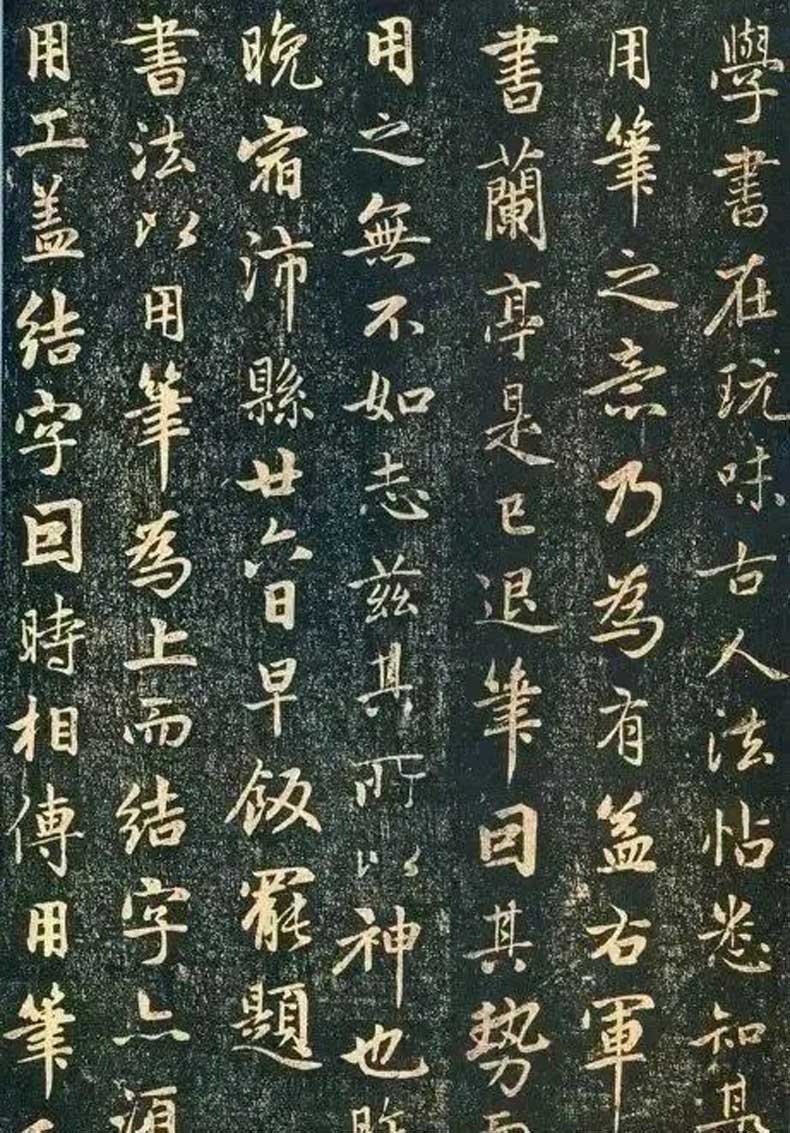 學書在玩味古人法帖悉知其
用筆之意乃為有益右軍
書蘭亭是已退筆因其勢而
用之無不如志兹其所以神也昨
晚宿沛縣廿六日早飯罷題
書法以用筆為上而結字亦須
用工盖結字因時相傳用筆